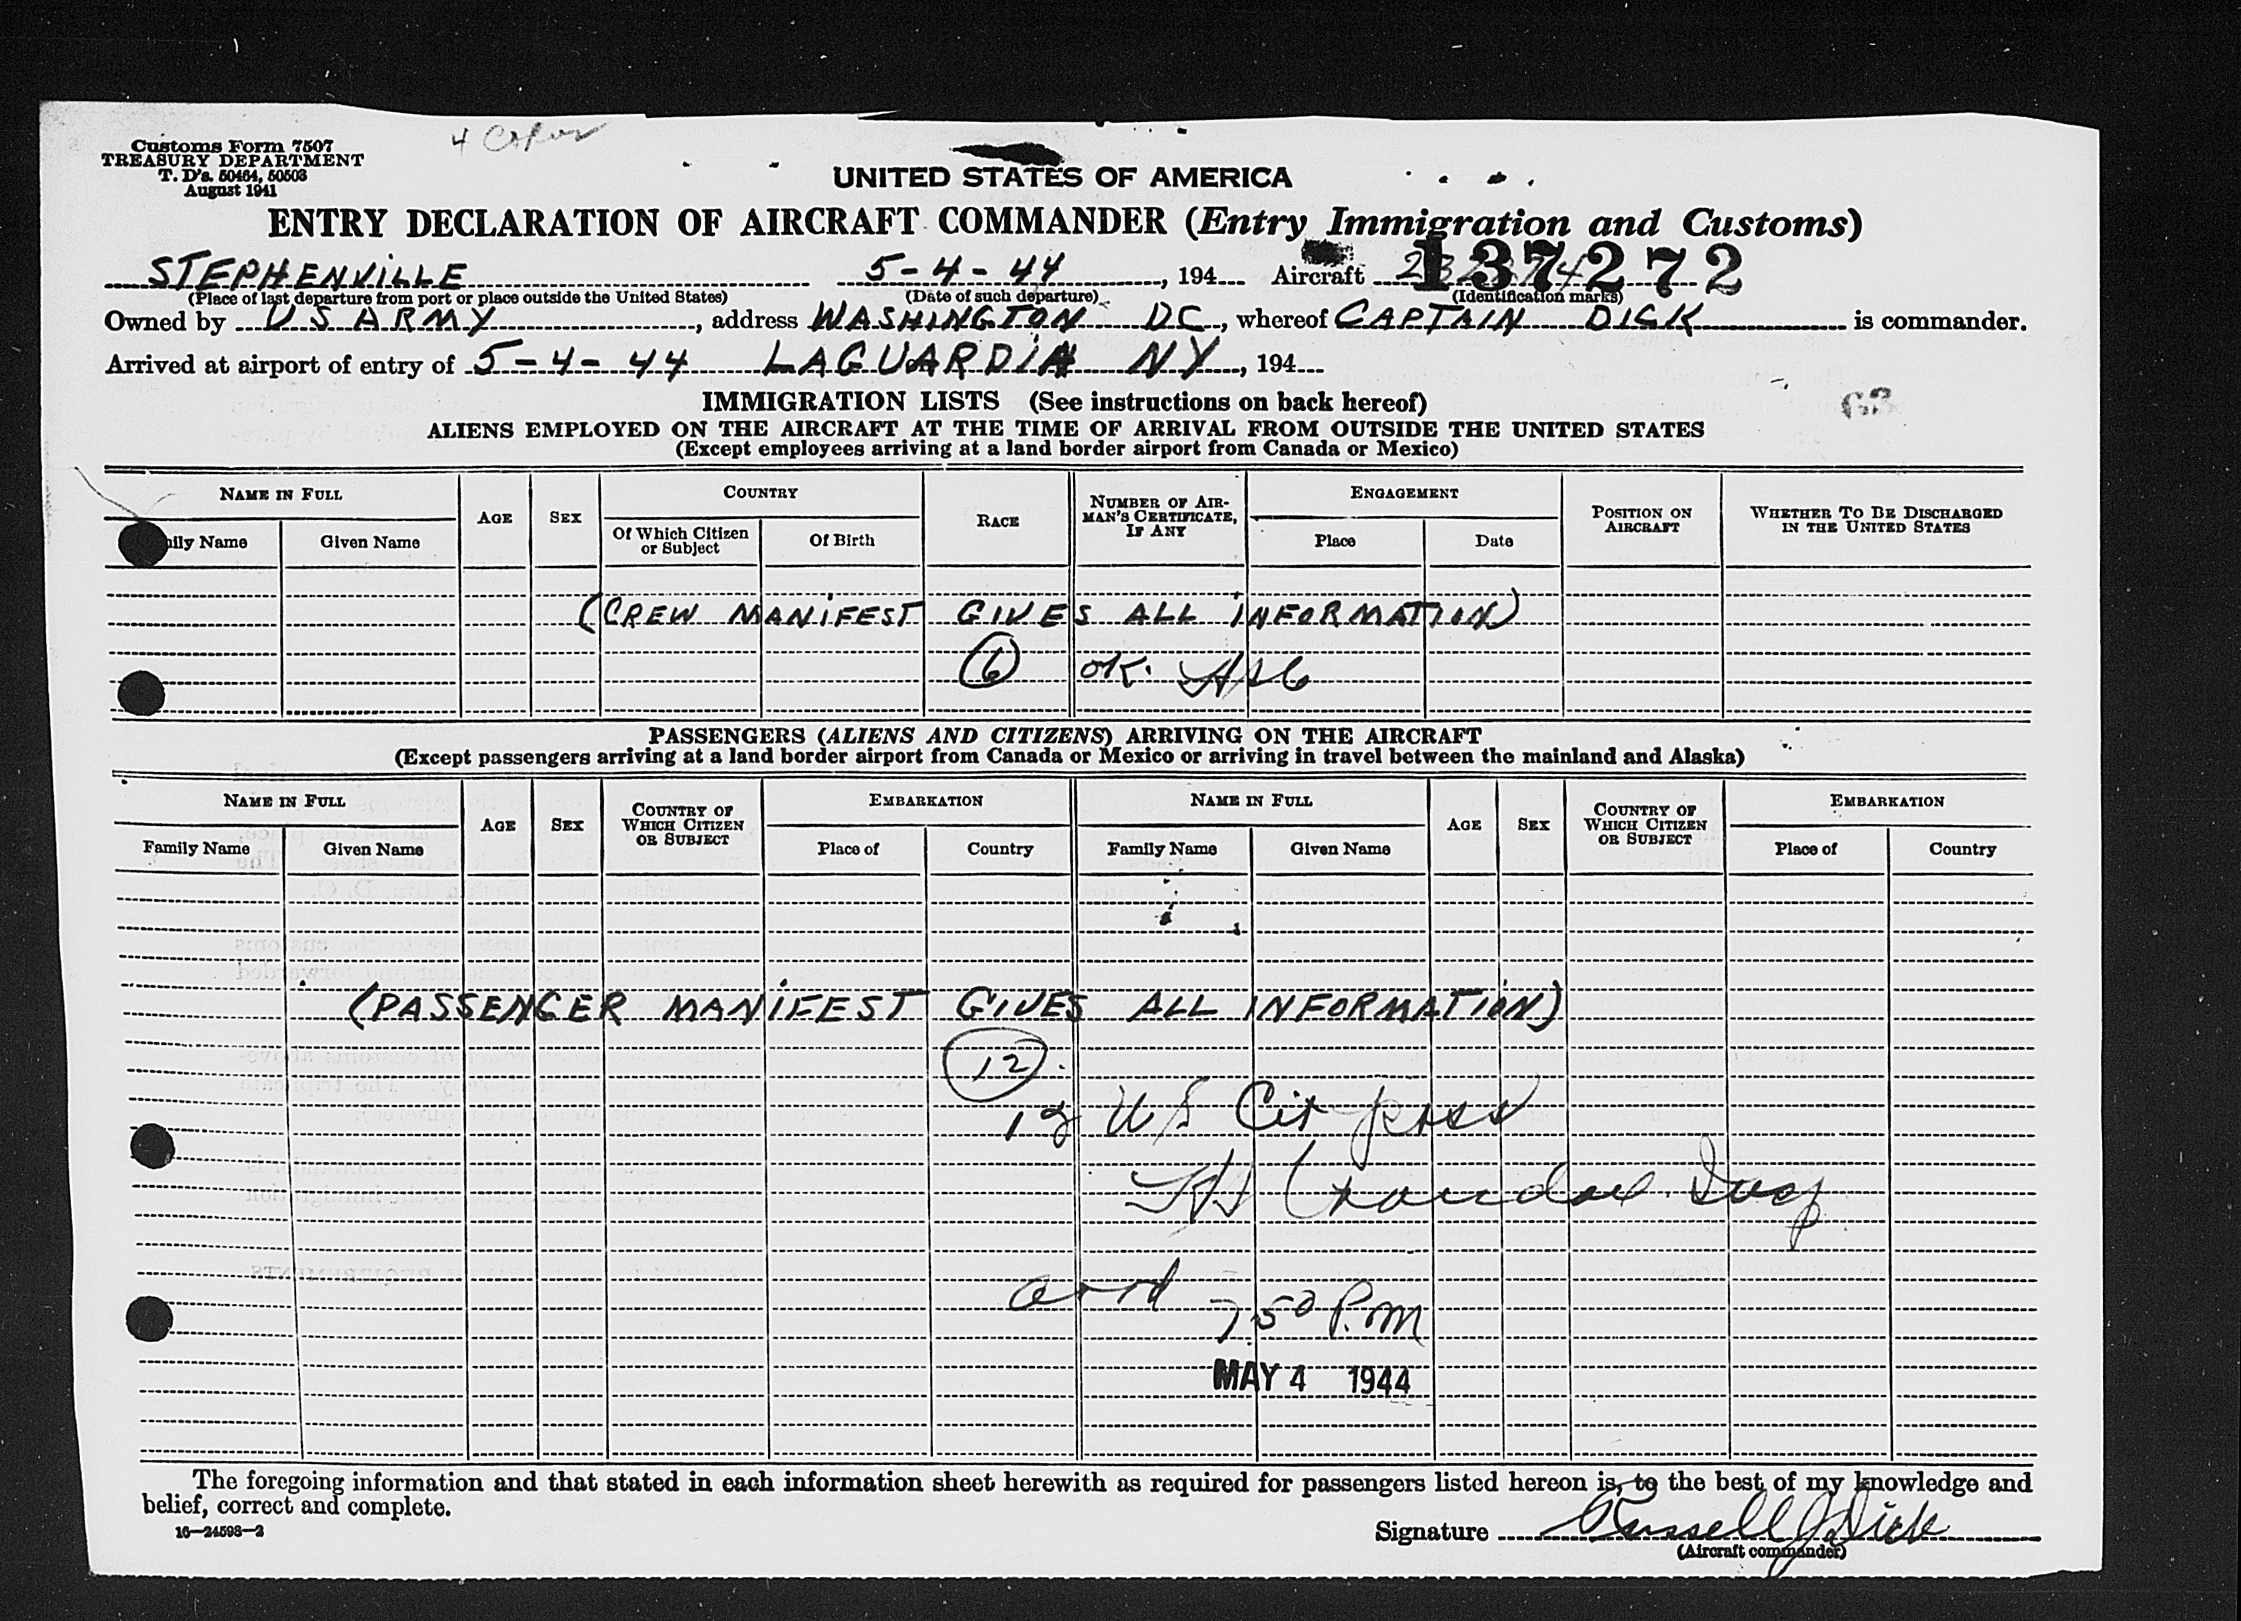 4 Copies
Customs Form 7507
TREASURY DEPARTMENT
T. D's. 50464, 50503
August 1941
UNITED STATES OF AMERICA
ENTRY DECLARATION OF AIRCRAFT COMMANDER (Entry Immigration and Customs)
137272
STEPHENVILLE 5-4-44, 194 Aircraft
(Place of last departure from port or place outside the United States) (Date of such departure) (Identification marks)
Owned by US ARMY, address WASHINGTON DC, whereof CAPTAIN DICK is commander.
Arrived at airport of entry of 5-4-44 LAGUARDIA NY, 194
IMMIGRATION LISTS (See instructions on back hereof)
63
ALIENS EMPLOYED ON THE AIRCRAFT AT THE TIME OF ARRIVAL FROM OUTSIDE THE UNITED STATES
(Except employees arriving at a land border airport from Canada or Mexico)
NAME IN FULL AGE SEX COUNTRY RACE NUMBER OF AIRMAN'S CERTIFICATE, IF ANY ENGAGEMENT POSITION ON AIRCRAFT WHETHER TO BE DISCHARGED IN THE UNITED STATES
ily Name Given Name Of Which Citizen or Subject Of Birth Place Date
(CREW MANIFEST GIVES ALL INFORMATION)
6 OK.
PASSENGERS (ALIENS AND CITIZENS) ARRIVING ON THE AIRCRAFT
(Except passengers arriving at a land border airport from Canada or Mexico or arriving in travel between the mainland and Alaska)
NAME IN FULL AGE SEX COUNTRY OF WHICH CITIZEN OR SUBJECT EMBARKATION NAME IN FULL AGE SEX COUNTRY OF WHICH CITIZEN OR SUBJECT EMBARKATION
Family Name Given Name Place of Country Family Name Given Name Place of Country
(PASSENGER MANIFEST GIVES ALL INFORMATION)
12
12 US Cit pass
Insp
arrd 7.50 P.M
MAY 4 1944
The foregoing information and that stated in each information sheet herewith as required for passengers listed hereon is, to the best of my knowledge and
belief, correct and complete.
16—24598-2
Signature Russell J Dick
(Aircraft commander)